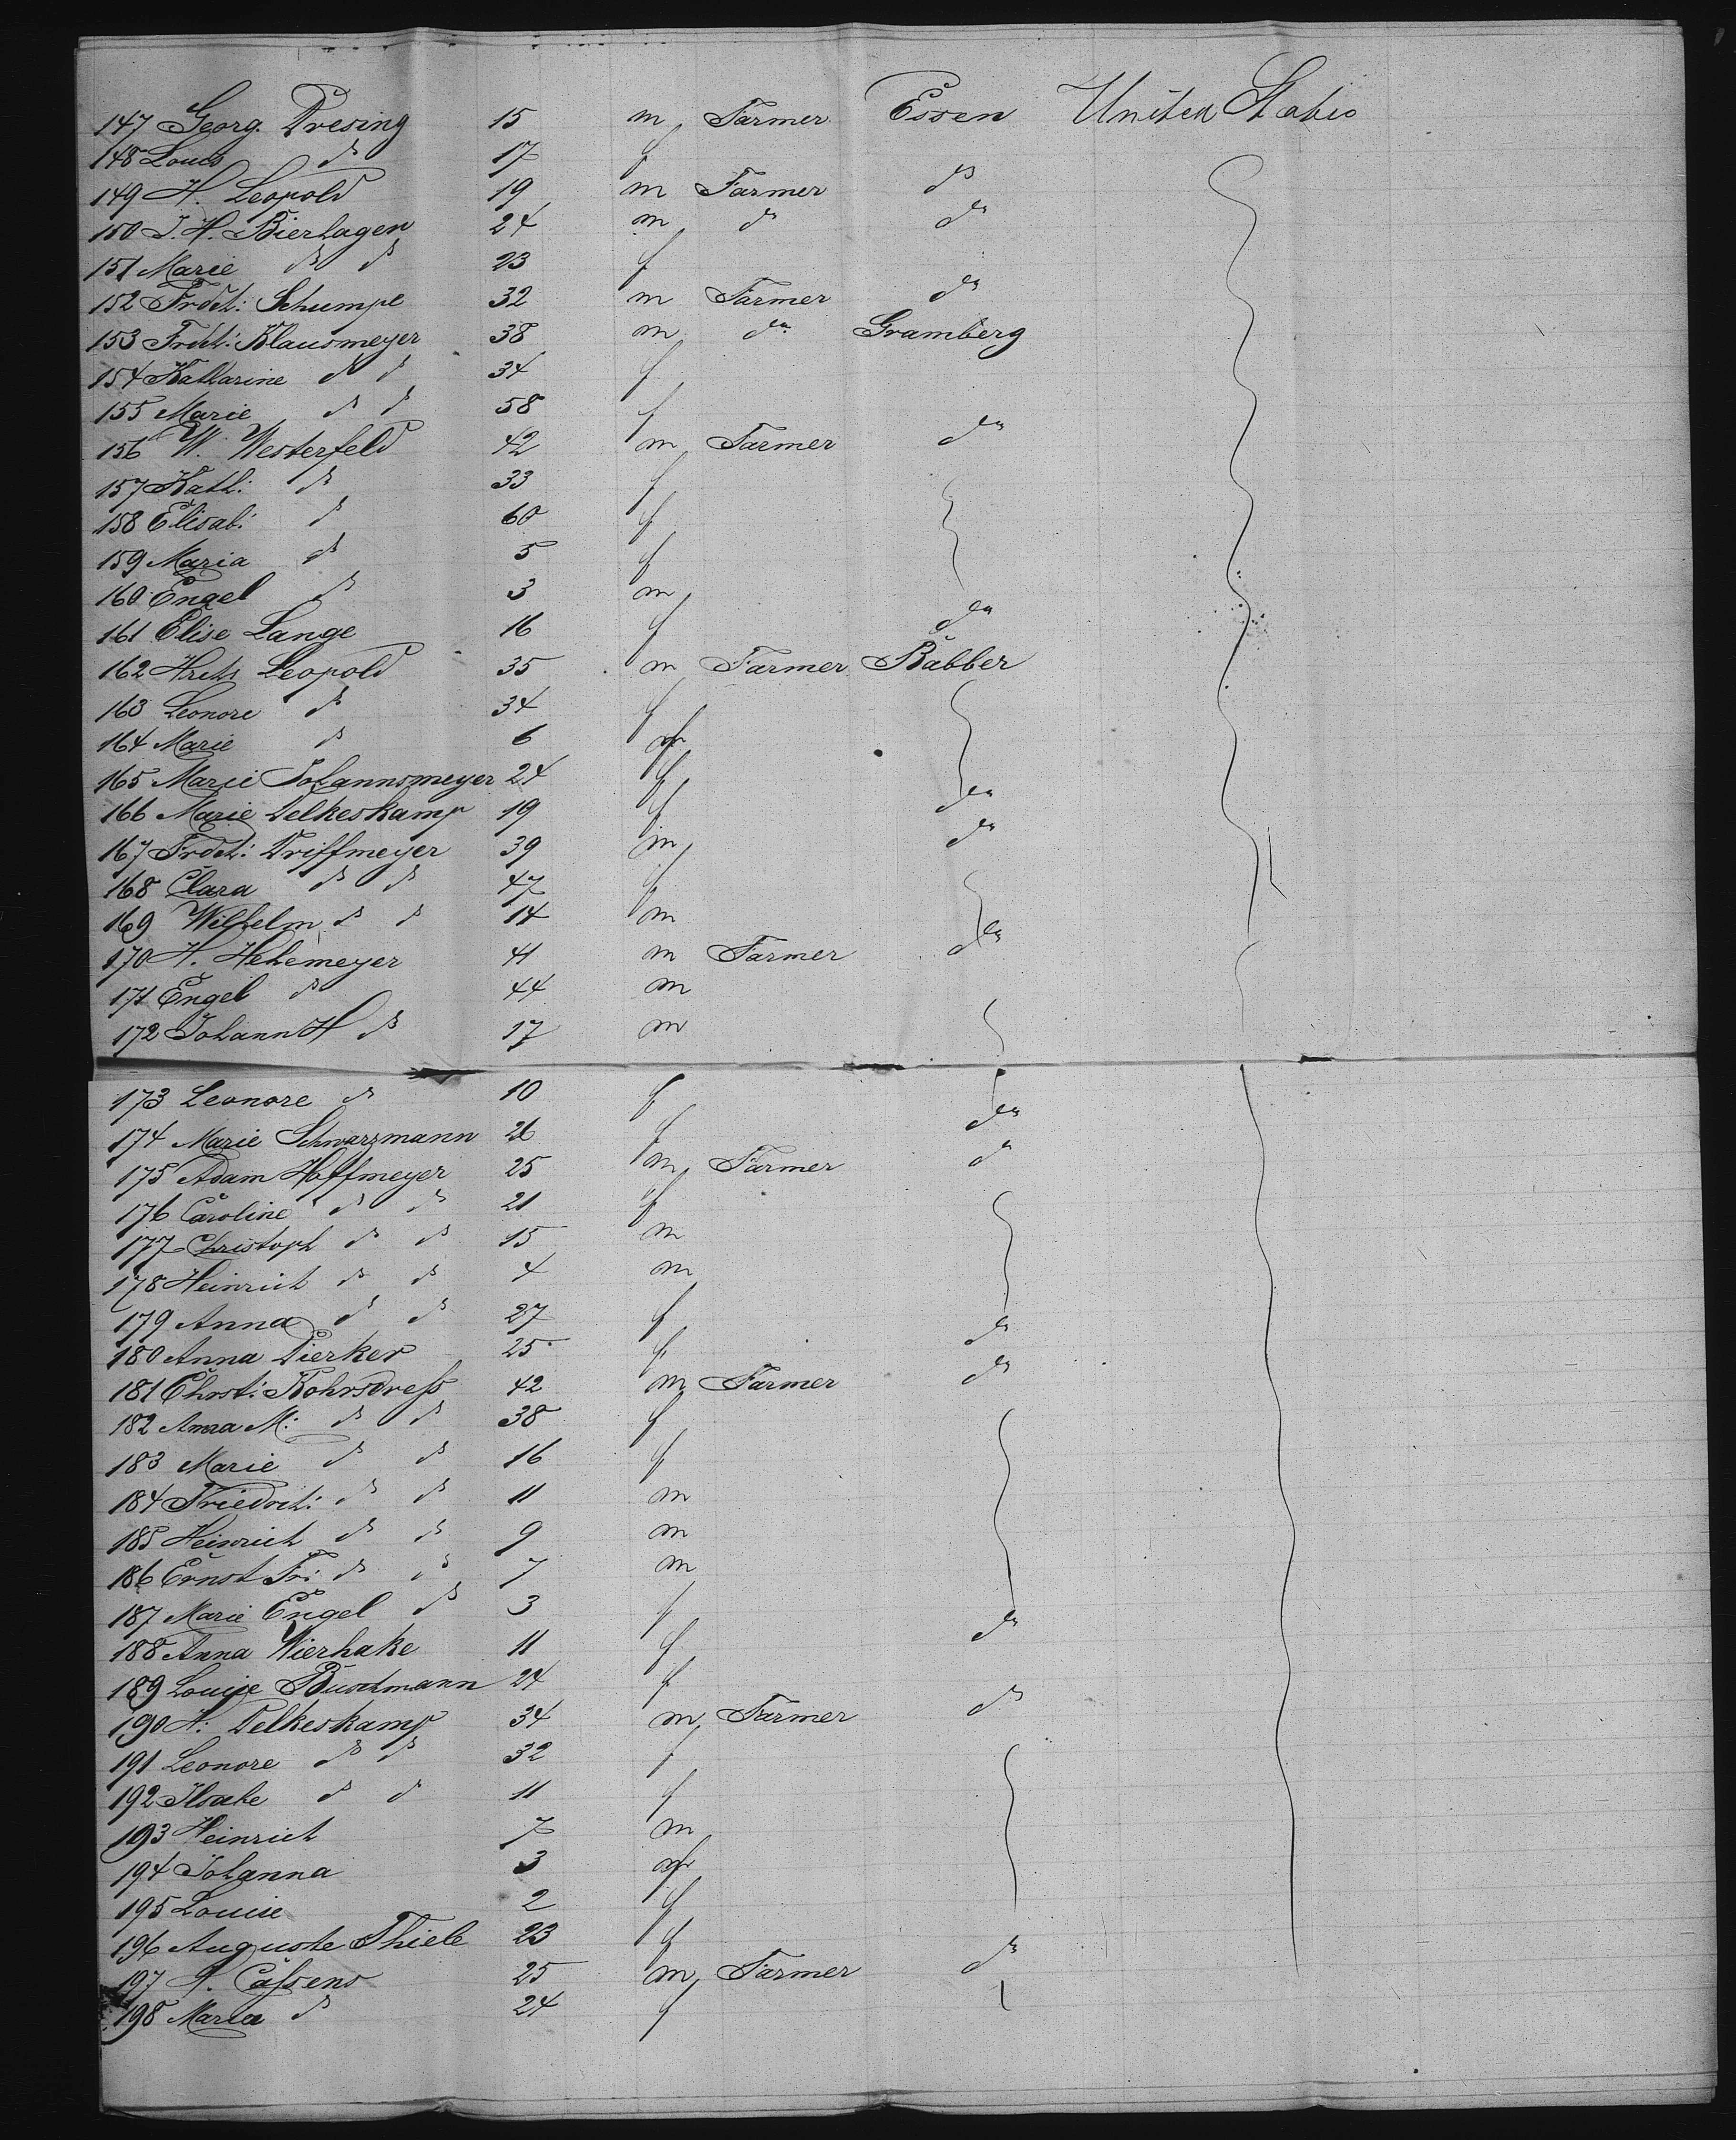 147 Georg. Dresing 15 m Farmer Essen United States
148 Louis do 17 f
149 H. Leopold 19 m Farmer do
150 J. H. Bierhagen 24 m do do
151 Marie do do 23 f
152 Frdch: Schumpe 32 m Farmer do
153 Frdch: Klausmeyer 38 m do Gramberg
154 Katharine do do 34 f
155 Marie do do 58 f
156 W. Westerfeld 42 m Farmer do
157 Kath: do 33 f
158 Elisab: do 60 f
159 Maria do 5 f
160 Engel do 3 m
161 Elise Lange 16 f do
162 Hrch Leopold 35 m Farmer Rabber
163 Leonore do 34 f
164 Marie do 6 f
165 Marie Johannsmeyer 24 f
166 Marie Delkeskamp 19 f do
167 Frdch: Driffmeyer 39 m do
168 Clara do do 47 f
169 Wilhelm do do 14 m
170 H. Hehemeyer 41 m Farmer do
171 Engel do 44 m
172 Johann H do 17 m
173 Leonore do 10 f
174 Marie Schwarzmann 26 f do
175 Adam Hoffmeyer 25 m Farmer do
176 Caroline do do 21 f
177 Christoph do do 15 m
178 Heinrich do do 4 m
179 Anna do do 27 f
180 Anna Dierker 25 f do
181 Christ: Kohrsdress 42 m Farmer do
182 Anna M: do do 38 f
183 Marie do do 16 f
184 Friedrch: do do 11 m
185 Heinrich do do 9 m
186 Ernst Fr: do do 7 m
187 Marie Engel do 3 f
188 Anna Wierhake 11 f do
189 Louise Buschmann 24 f
190 H: Delkeskamp 34 m Farmer do
191 Leonore do do 32 f
192 Ilsabe do do 11 f
193 Heinrich 7 m
194 Johanna 3 f
195 Louise 2 f
196 Auguste Thiele 23 f
197 H. Cassens 25 m Farmer do
198 Maria do 24 f